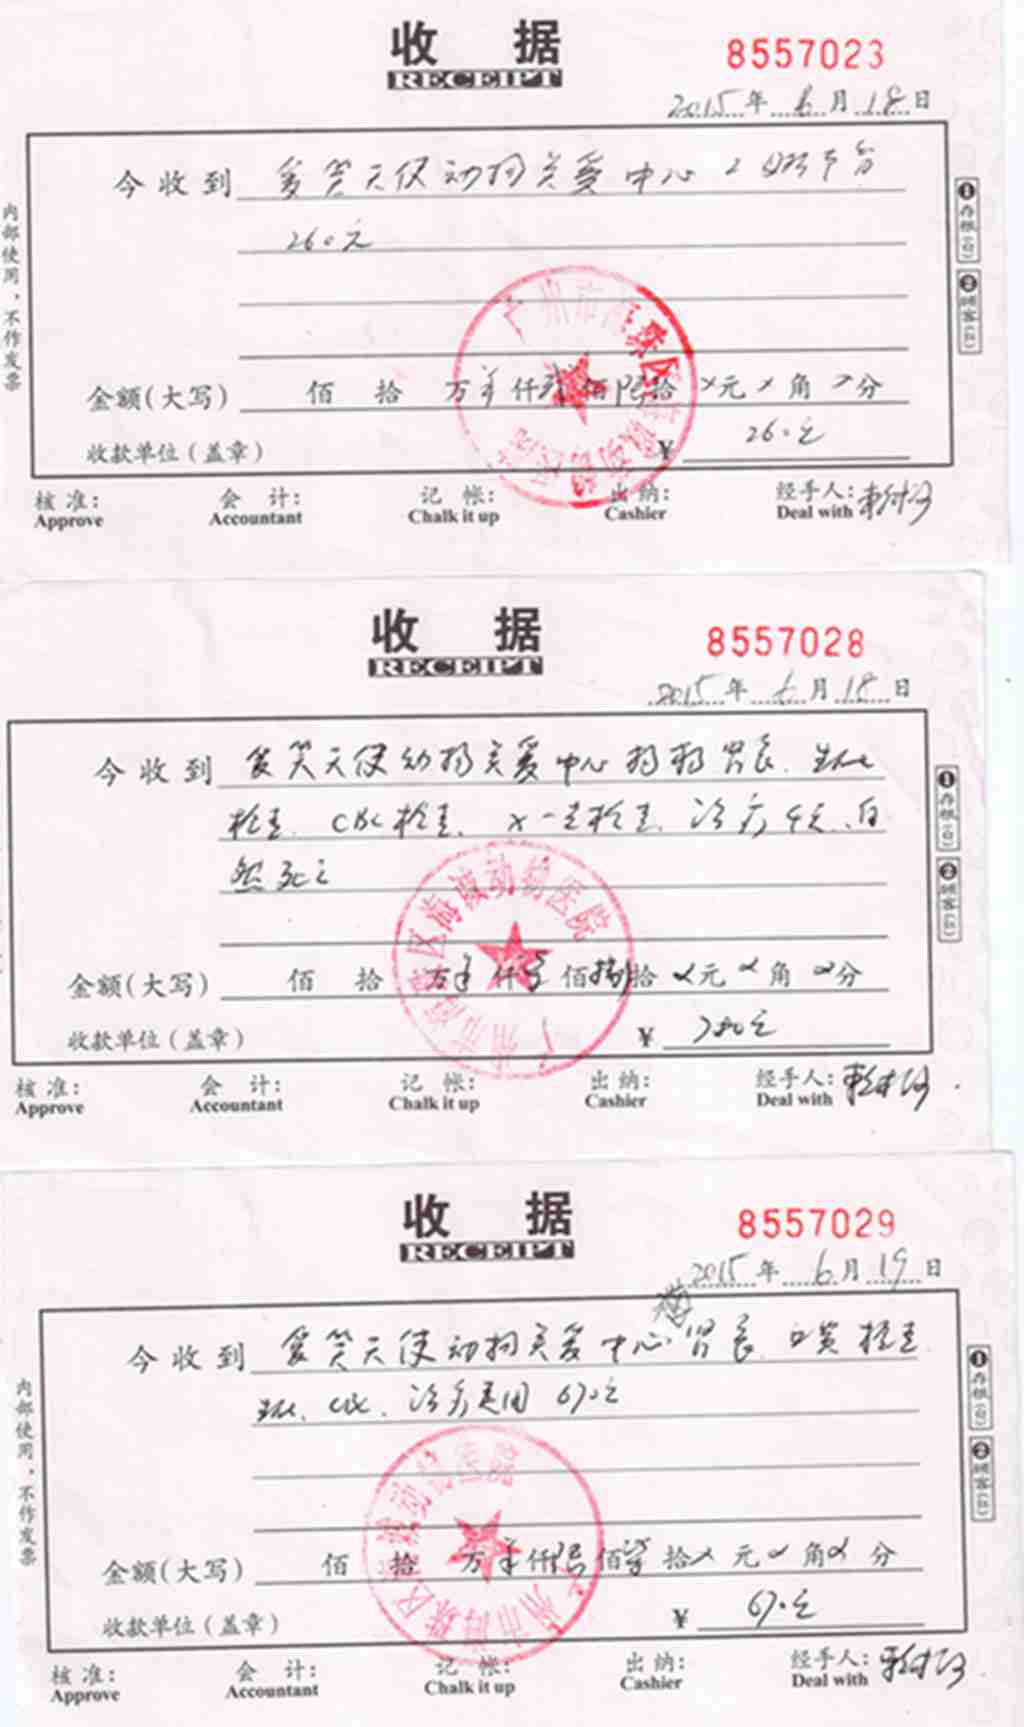 收 据
RECEIPT
8557023
2015年 6月 18日
今收到 爱笑天使动物关爱中心
260元
金额(大写) 佰 拾 万 仟 佰 拾 元 角 分
收款单位(盖章) ¥ 260元
核准: 会 计: 记 帐: 出 纳: 经手人:
Approve Accountant Chalk it up Cashier Deal with
内部使用,不作发票
①存根(白) ②顾客(红)
广州市海珠区海波动物医院
收 据
RECEIPT
8557028
2015年 6月 18日
今收到 爱笑天使动物关爱中心 生化
检查、CBC检查、X一光检查、治疗 自
然死亡
金额(大写) 佰 拾 万 仟 佰 拾 元 角 分
收款单位(盖章) ¥ 780元
核准: 会 计: 记 帐: 出 纳: 经手人:
Approve Accountant Chalk it up Cashier Deal with
①存根(白) ②顾客(红)
广州市海珠区海波动物医院
收 据
RECEIPT
8557029
2015年 6月 19日
今收到 爱笑天使动物关爱中心 检查
生化、CBC、治疗费用 670元
金额(大写) 佰 拾 万 仟 佰 拾 元 角 分
收款单位(盖章) ¥ 670元
核准: 会 计: 记 帐: 出 纳: 经手人:
Approve Accountant Chalk it up Cashier Deal with
内部使用,不作发票
①存根(白) ②顾客(红)
广州市海珠区海波动物医院